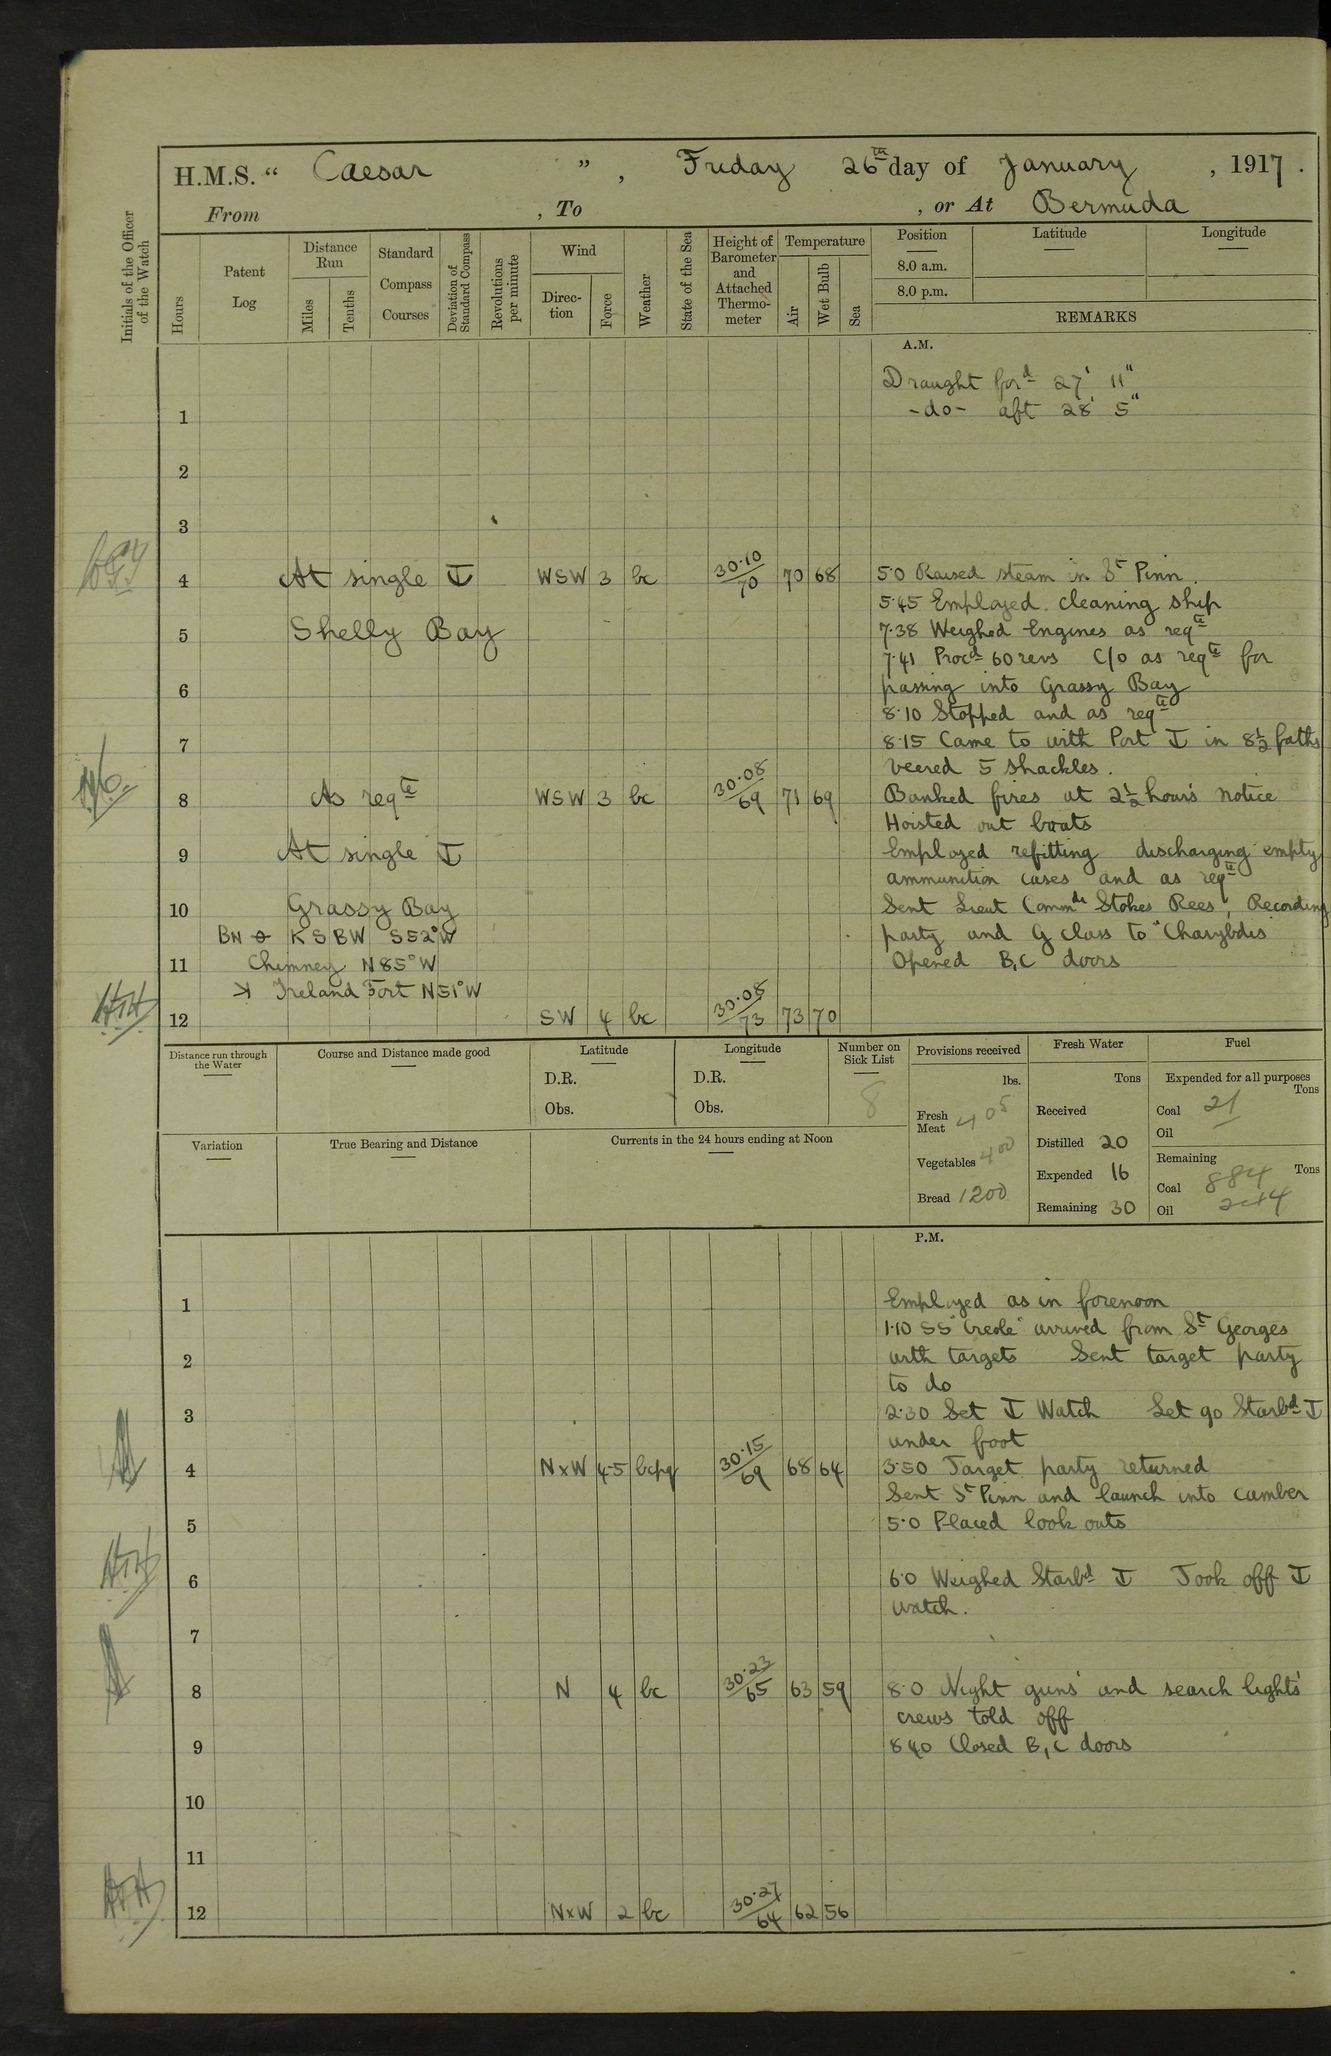 H.M.S. " Caesar ", Friday 26th day of January, 1917.
From , To , or At Bermuda
Initials of the Officer of the Watch
Hours
Patent Log
Distance Run
Miles
Tenths
Standard Compass Courses
Deviation of Standard Compass
Revolutions per minute
Wind
Direc-tion
Force
Weather
State of the Sea
Height of Barometer and Attached Thermo-meter
Temperature
Air
Wet Bulb
Sea
Position
Latitude
Longitude
8.0 a.m.
8.0 p.m.
REMARKS
A.M.
Draught for'd 27' 11"
-do- aft 28' 5"
1
2
3
4 At single ⚓ WSW 3 bc 30·10/70 70 68 5·0 Raised steam in St Pinn.
5·45 Employed cleaning ship
5 Shelly Bay 7·38 Weighed Engines as reqte
7·41 Procd 60 revs C/o as reqte for
6 passing into Grassy Bay
8·10 Stopped and as reqte
7 8·15 Came to with Port ⚓ in 8½ faths
veered 5 shackles.
8 As reqte WSW 3 bc 30·08/69 71 69 Banked fires at 2½ hours notice
Hoisted out boats
9 At single ⚓ Employed refitting discharging empty
ammunition cases and as reqte
10 Grassy Bay Sent Lieut Commdr Stokes Rees, Recording
KSBW S52°W party and G class to "Charybdis"
11 Chimney N85°W Opened B,C doors
Ireland Fort N51°W
12 SW 4 bc 30·08/73 73 70
Distance run through the Water
Course and Distance made good
Latitude
D.R.
Obs.
Longitude
D.R.
Obs.
Number on Sick List
8
Provisions received
lbs.
Fresh Meat 405
Vegetables 400
Bread 1200
Fresh Water
Tons
Received
Distilled 20
Expended 16
Remaining 30
Fuel
Expended for all purposes
Tons
Coal 21
Oil
Remaining
Tons
Coal 884
Oil
Variation
True Bearing and Distance
Currents in the 24 hours ending at Noon
P.M.
1 Employed as in forenoon
1·10 SS "Creole" arrived from St Georges
2 with targets Sent target party
to do
3 2·30 Set ⚓ Watch Let go Starbd ⚓
under foot
4 NxW 4-5 bcpq 30·15/69 68 64 3·50 Target party returned
Sent St Pinn and launch into camber
5 5·0 Placed look outs
6 6·0 Weighed Starbd ⚓ Took off ⚓
watch.
7
8 N 4 bc 30·23/65 63 59 8·0 Night guns' and search lights'
crews told off
9 8 40 Closed B,C doors
10
11
12 NxW 2 bc 30·27/64 62 56